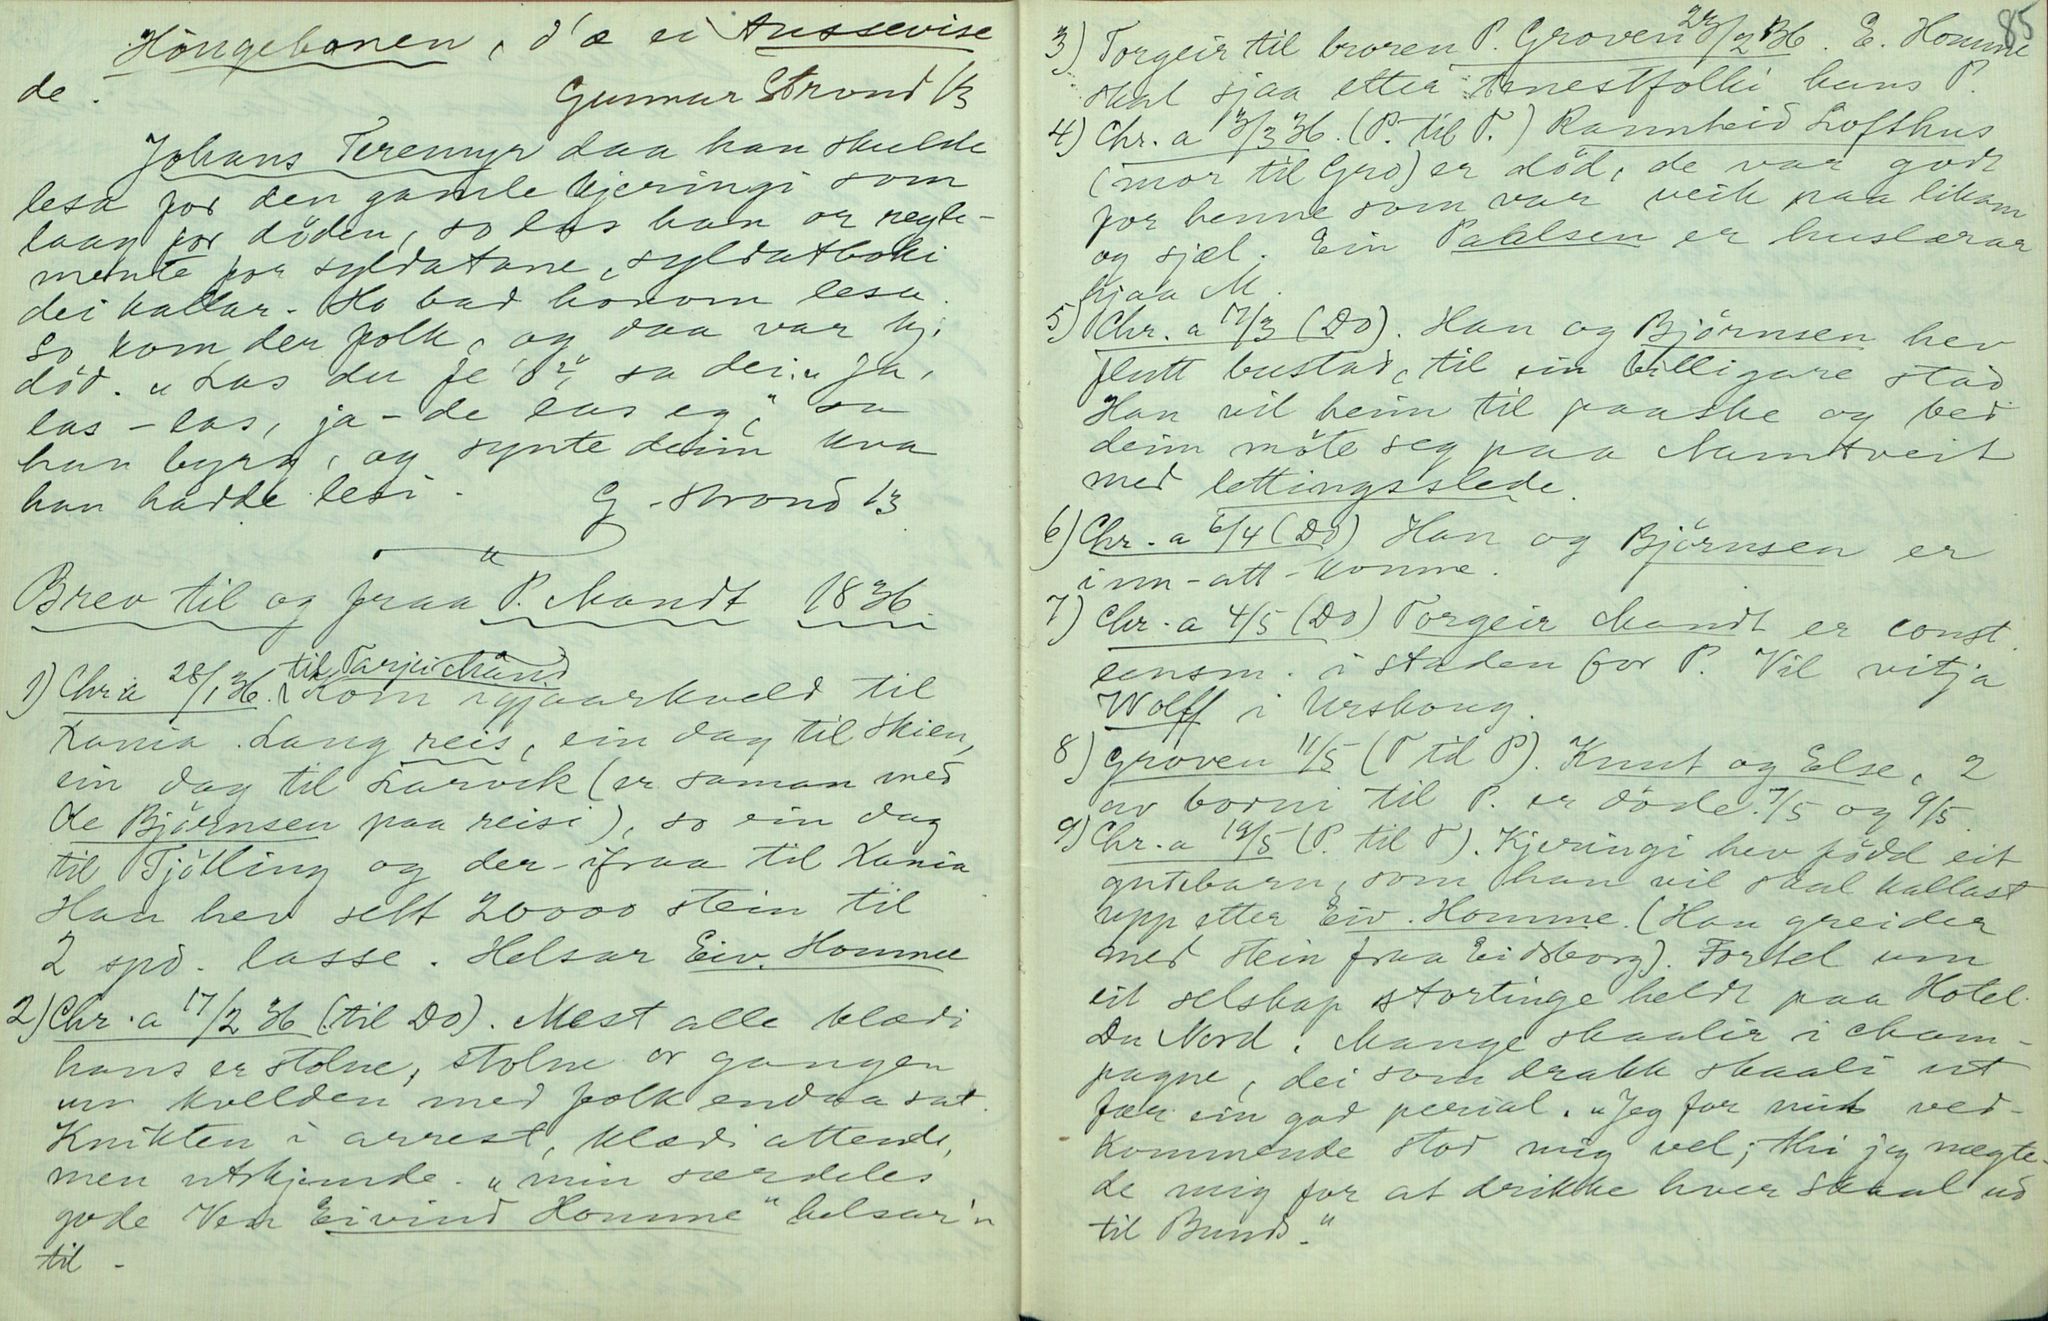 Höngebonen, d'æ ei Tussevise
de. Gunnar Strond 13
Johans Teremyr daa han skulde
lesa for den gamle kjeringi som
laag for döden, so las han or regle-
mente for syldatane, syldatboki
dei kallar. Ho bad honom lesa.
So kom der folk, og daa var kj.
död. "Las du fe 'o?", sa dei. "Ja,
las - las, ja - de las eg," sa
han byrg, og synte deim kva
han hadde lesi. G. Strond 13
Brev til og fraa P. Mandt 1836.
1) Chr.a 28/1 36. til Tarjei Mand Kom igjaarkveld til
Xania. Lang reis, ein dag til Skien,
ein dag til Larvik (er saman med
de Björnsen paa reisi), so ein dag
til Tjölling og der-ifraa til Xania
Han hev selt 20000 stein til
2 spd. lasse. Helsar Eiv. Homme
2) Chr.a 17/2 36 (til Do). Mest alle klædi
hans er stolne, stolne or gangen
um kvelden med folk endaa sat.
Knikten i arrest, klædi attende,
men utskjemde. "min særdeles
gode Ven Eivind Homme" helsar'n
til -
85
3) Torgeir til broren P. Groven 28/2 36. E. Homme
skal sjaa etter tenestfolki hans P.
4) Chr.a 13/3 36. (P. til T.) Rannheid Lofthus
(mor til Gro) er död, de var godt
for henne som var veik paa likam
og sjæl. Ein Pahlsen er huslærar
hjaa M.
5) Chr.a 17/3 (Do). Han og Björnsen hev
flutt bustad, til ein billigare stad
Han vil heim til paaske og bed
deim möte seg paa Namtveit
med lettingsslede.
6) Chr.a 6/4 (Do) Han og Björnsen er
inn-att-komne.
7) Chr.a 4/5 (Do) Torgeir Mandt er const.
lensm. i staden for P. Vil vitja
Wolff i Urskoug.
8) Groven 11/5 (T til P). Knut og Else, 2
av borni til P. er döde 7/5 og 9/5.
9) Chr.a 19/5 (P. til T). Kjeringi hev född eit
gutebarn, som han vil skal kallast
upp etter Eiv. Homme. (Han greider
med stein fraa Eidsborg). Fortel um
eit selskap stortinge heldt paa Hotel
Du Nord. Mange skaaler i cham-
pagne, dei som drakk skaali ut
fær ein god perial. "Jeg for mit ved-
kommende stod mig vel; thi jeg nægte-
de mig for at drikke hver Skaal ud
til Bunds."